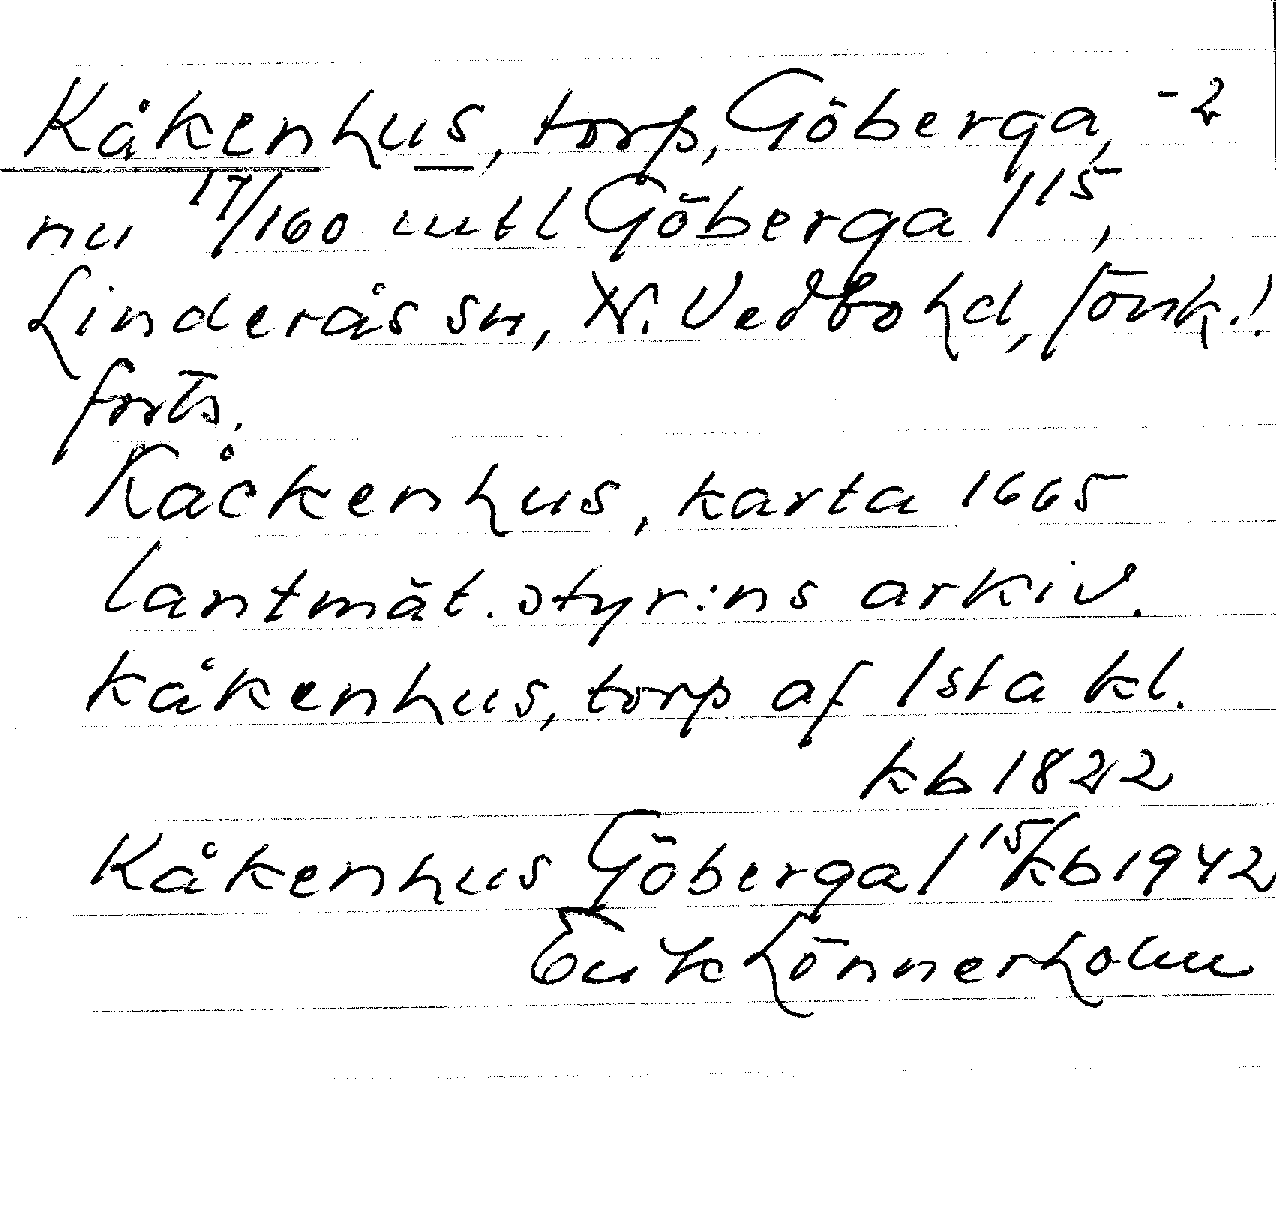 Kåkenhus, torp, Göberga, -2
nu 17/160 mtl Göberga 1 15,
Linderås sn, N. Vedbo hd, Jönk.l.
forts.
Kåckenhus, karta 1665
lantmät. styr:ns arkiv.
kåkenhus, torp af 1sta kl.
kb 1822
Kåkenhus Göberga 1 15/kb 1942
Erik Lönnerholm